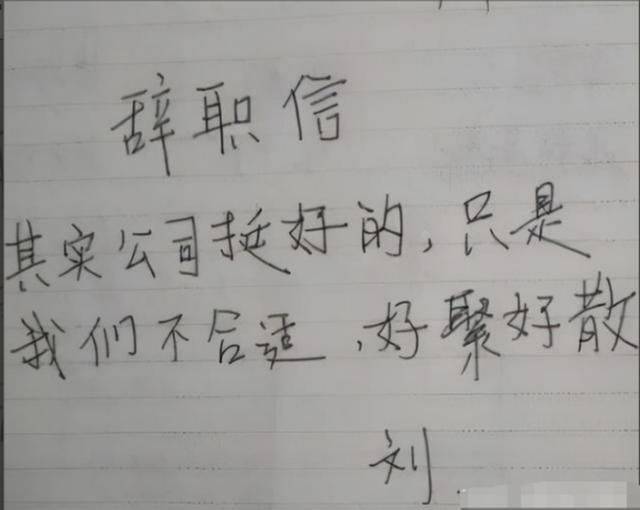 辞职信
其实公司挺好的,只是
我们不合适,好聚好散
刘